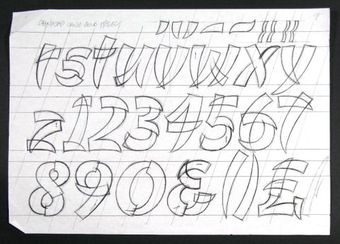 rstuvwxy
z1234567
890&()£